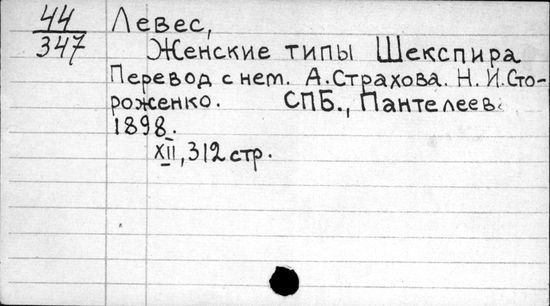 44
347
Левес,
Женские типы Шекспира
Перевод с нем. А.Страхова. Н.И.Сто-
роженко. СПБ., Пантелеев
1898.
XII, 312 стр.